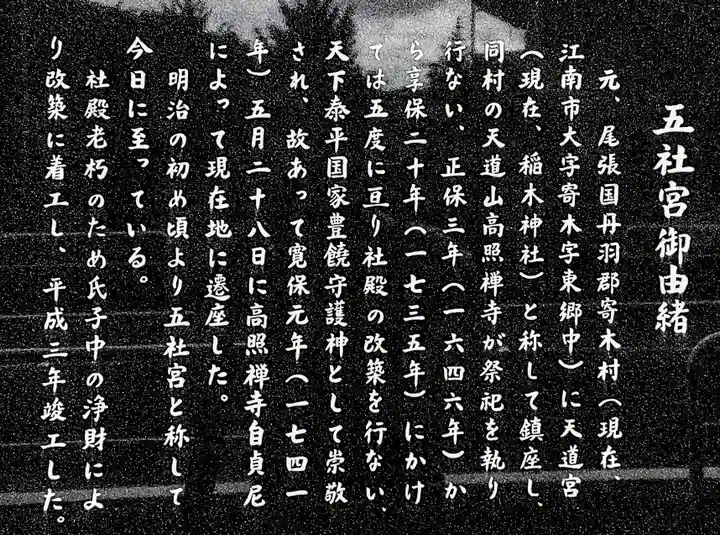 五社宮御由緒
元、尾張国丹羽郡寄木村（現在、
江南市大字寄木字東郷中）に天道宮
（現在、稲木神社）と称して鎮座し、
同村の天道山高照禅寺が祭祀を執り
行ない、正保三年（一六四六年）か
ら享保二十年（一七三五年）にかけ
ては五度に亘り社殿の改築を行ない、
天下泰平国家豊饒守護神として崇敬
され、故あって寛保元年（一七四一
年）五月二十八日に高照禅寺自貞尼
によって現在地に遷座した。
明治の初め頃より五社宮と称して
今日に至っている。
社殿老朽のため氏子中の浄財によ
り改築に着工し、平成三年竣工した。